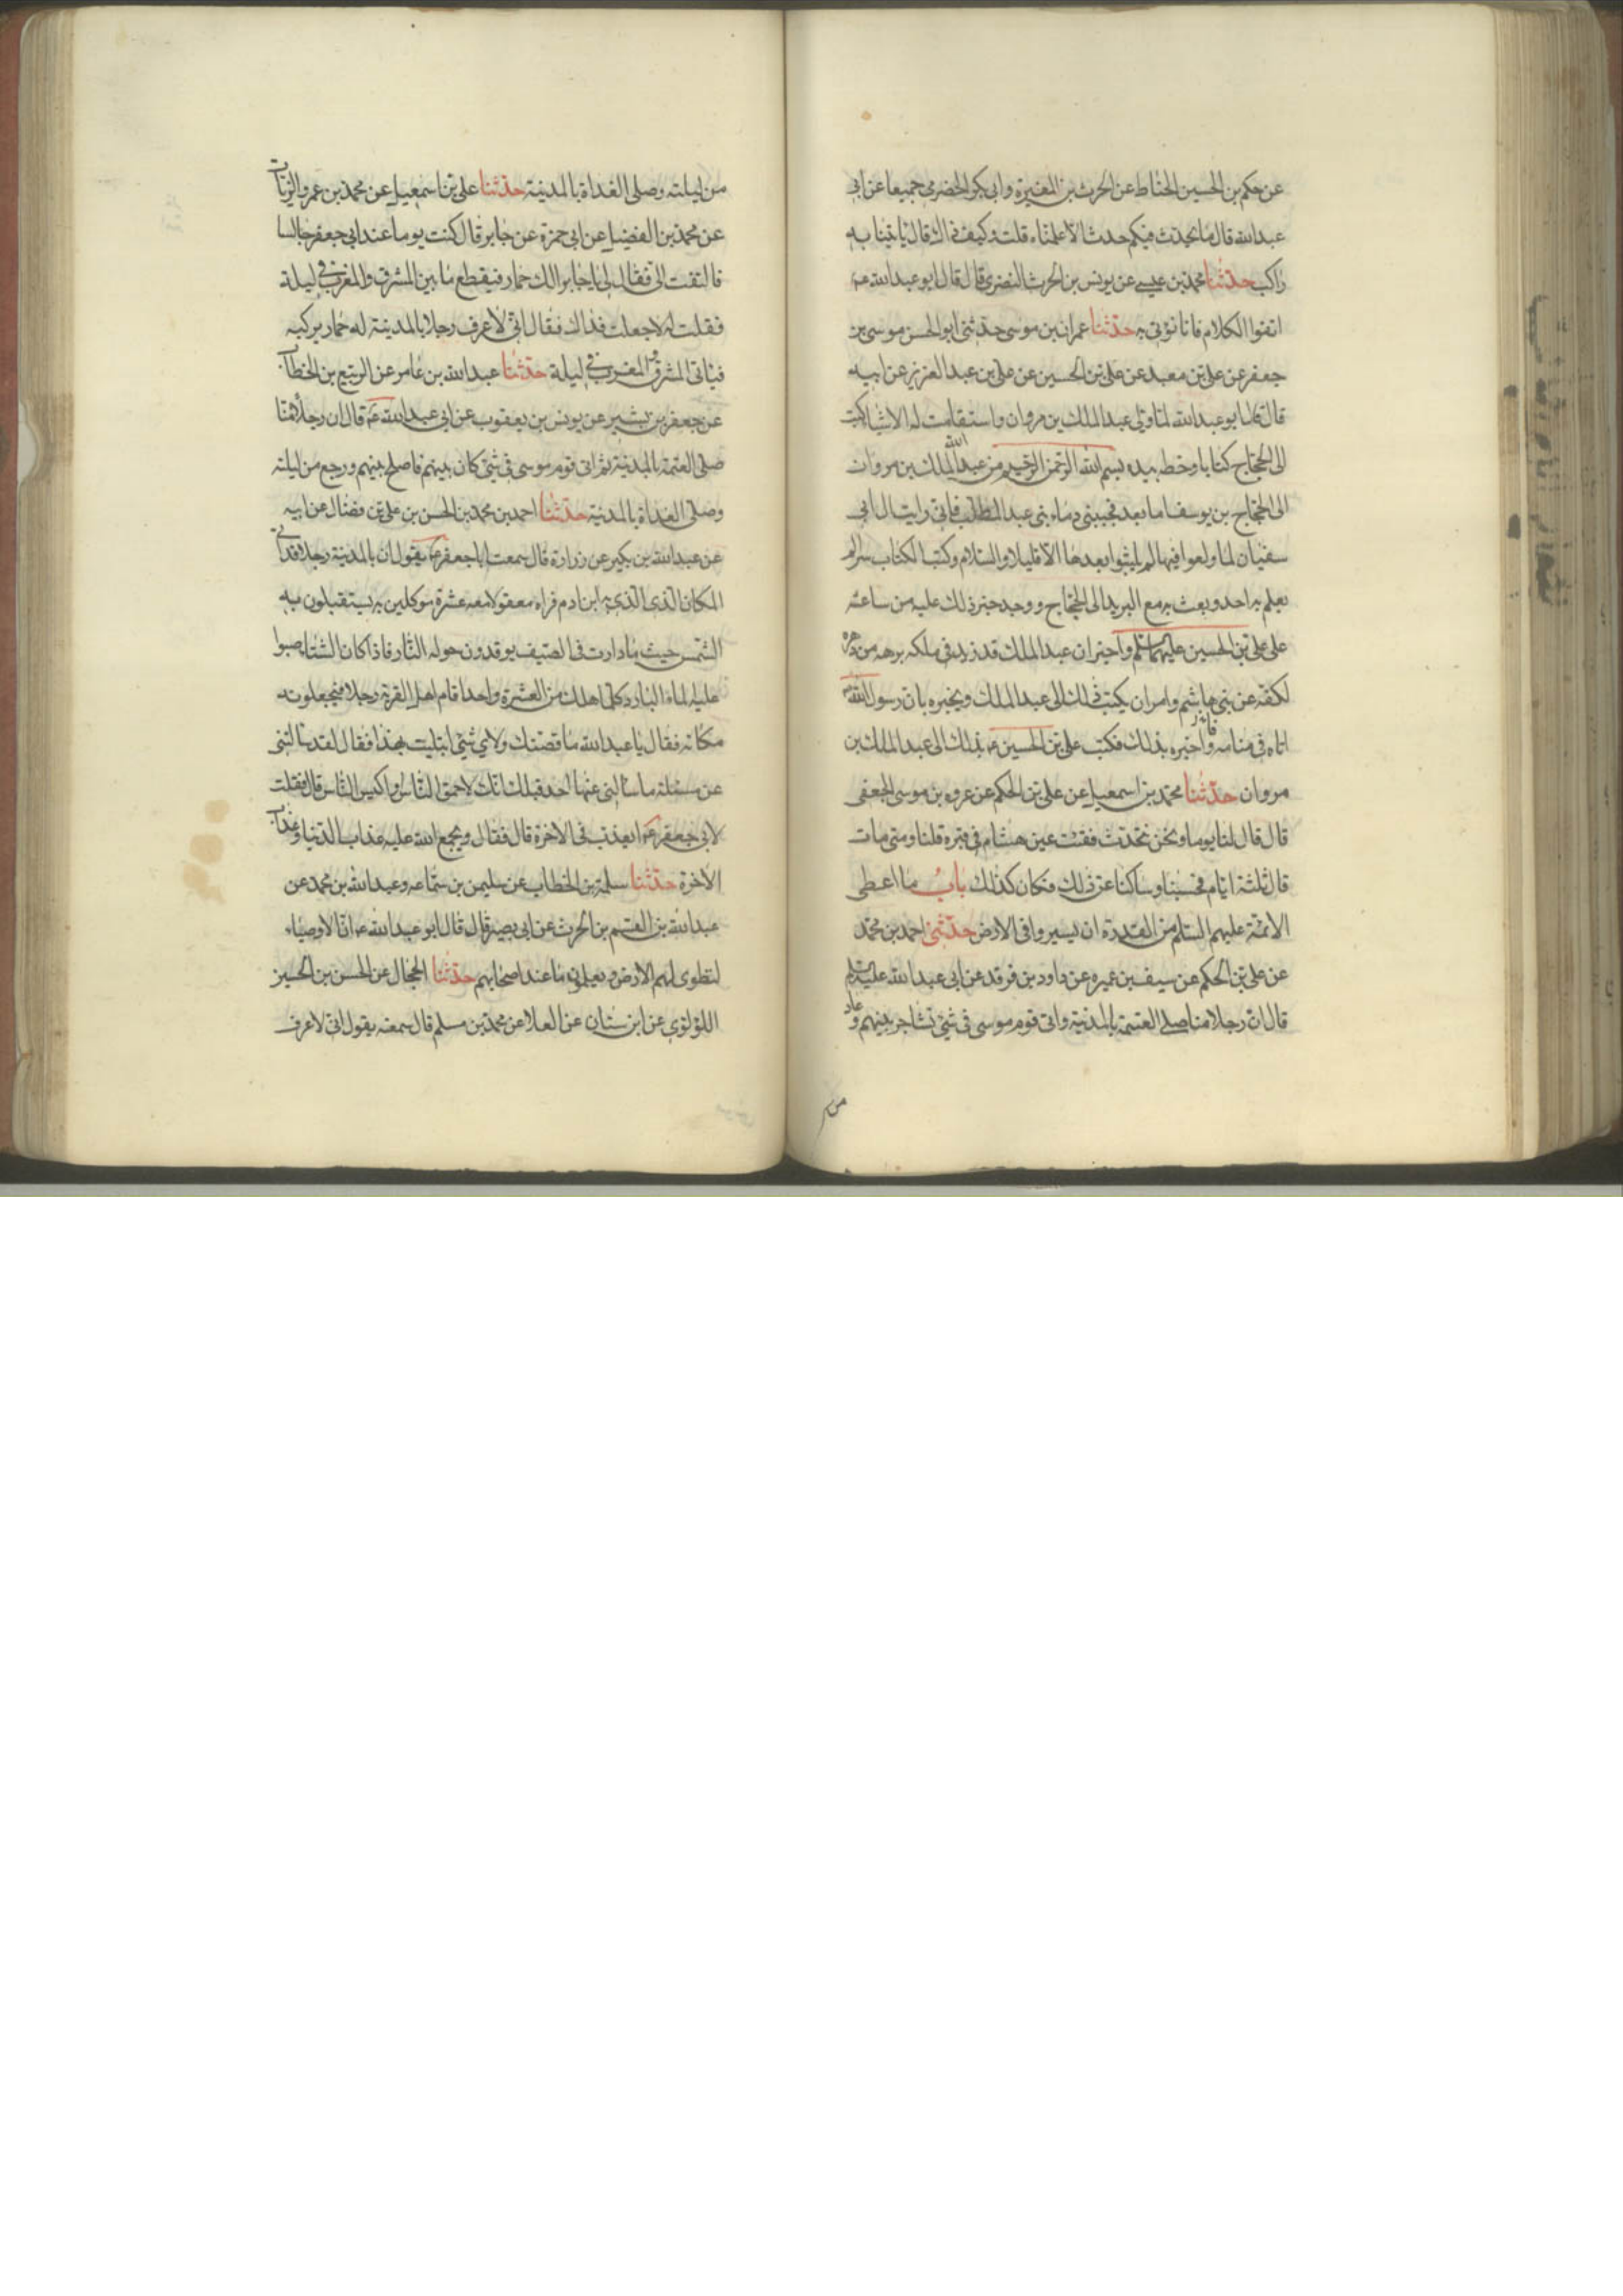 عن حكم بن الحسين الحناط عن الحرث بن المغيرة وابى بكر الحضرمى جميعا عن ابى
عبدالله قال ما يحدث فيكم حدث الا علمناه قلت وكيف ذاك قال ياتينا به
راكب حدثنا محمد بن عيسى عن يونس بن الحرث النضرى قال قال ابو عبدالله ع
اتقوا الكلام فانا نؤتى به حدثنا عمران بن موسى حدثنى ابو الحسن موسى بن
جعفر عن على بن معبد عن على بن الحسين عن على بن عبد العزيز عن ابيه
قال قال ابو عبدالله لما ولى عبد الملك بن مروان واستقامت له الاشياء كتب
الى الحجاج كتابا وخطه بيده بسم الله الرحمن الرحيم من عبد الله عبد الملك بن مروان
الى الحجاج بن يوسف اما بعد فجنبنى دماء بنى عبد المطلب فانى رايت ال ابى
سفيان لما ولعوا فيها لم يلبثوا بعدها الا قليلا والسلام وكتب الكتاب سرا لم
يعلم به احد وبعث به مع البريد الى الحجاج وورد خبر ذلك عليه من ساعته
على على بن الحسين عليهما السلم واخبر ان عبد الملك قد زيد فى ملكه برهه من دهره
لكفه عن بنى هاشم وامر ان يكتب ذلك الى عبد الملك ويخبره بان رسول الله ص
اتاه فى منامه واخبره بذلك فكتب على بن الحسين ع بذلك الى عبد الملك بن
مروان حدثنا محمد بن اسمعيل عن على بن الحكم عن عروه بن موسى الجعفى
قال قال لنا يوما ونحن نتحدث فقئت عين هشام فى قبره قلنا ومتى مات
قال ثلثة ايام فحسبنا وسالنا عن ذلك فكان كذلك باب ما اعطى
الائمة عليهم السلم من القدرة ان يسيروا فى الارض حدثنى احمد بن محمد
عن على بن الحكم عن سيف بن عميره عن داود بن فرقد عن ابى عبدالله عليه السلم
قال ان رجلا منا صلى العتمة بالمدينة واتى قوم موسى فى شئ تشاجر بينهم وعاد
من
من ليلته وصلى الغداة بالمدينة حدثنا على بن اسمعيل عن محمد بن عمرو الزيات
عن محمد بن الفضيل عن ابى حمزة عن جابر قال كنت يوما عند ابى جعفر جالسا
فالتفت الى فقال لى يا جابر الك حمار فيقطع ما بين المشرق والمغرب فى ليلة
فقلت له لا جعلت فداك فقال انى لاعرف رجلا بالمدينة له حمار يركبه
فياتى المشرق والمغرب فى ليلة حدثنا عبدالله بن عامر عن الربيع بن الخطاب
عن جعفر بن بشير عن يونس بن يعقوب عن ابى عبدالله ع قال ان رجلا منا
صلى العتمة بالمدينة ثم اتى قوم موسى فى شئ كان بينهم فاصلح بينهم ورجع من ليلته
وصلى الغداة بالمدينة حدثنا احمد بن محمد بن الحسن بن على بن فضال عن ابيه
عن عبدالله بن بكير عن زرارة قال سمعت ابا جعفر ع يقول ان بالمدينة رجلا قد اتى
المكان الذى الذى به ابن ادم فراه معقولا معه عشرة موكلين به يستقبلون به
الشمس حيث ما دارت فى الصيف يوقدون حوله النار فاذا كان الشتا صبوا
عليه الماء البارد كلما هلك من العشرة واحد اقام اهل القرية رجلا فيجعلونه
مكانه فقال يا عبدالله ما قصتك ولاى شئ ابتليت بهذا فقال لقد سالتنى
عن مسئلة ما سالنى عنها احد قبلك انك لاحمق الناس او اكيس الناس قال فقلت
لابى جعفر ع ايعذب فى الاخرة قال فقال ويجمع الله عليه عذاب الدنيا وعذاب
الاخرة حدثنا سلمة بن الخطاب عن سليمن بن سماعه وعبدالله بن محمد عن
عبدالله بن القسم بن الحرث عن ابى بصير قال قال ابو عبدالله ع ان الاوصياء
لتطوى لهم الارض ويعلمون ما عند اصحابهم حدثنا الحجال عن الحسن بن الحسين
اللؤلؤى عن ابن سنان عن العلا عن محمد بن مسلم قال سمعته يقول انى لاعرف